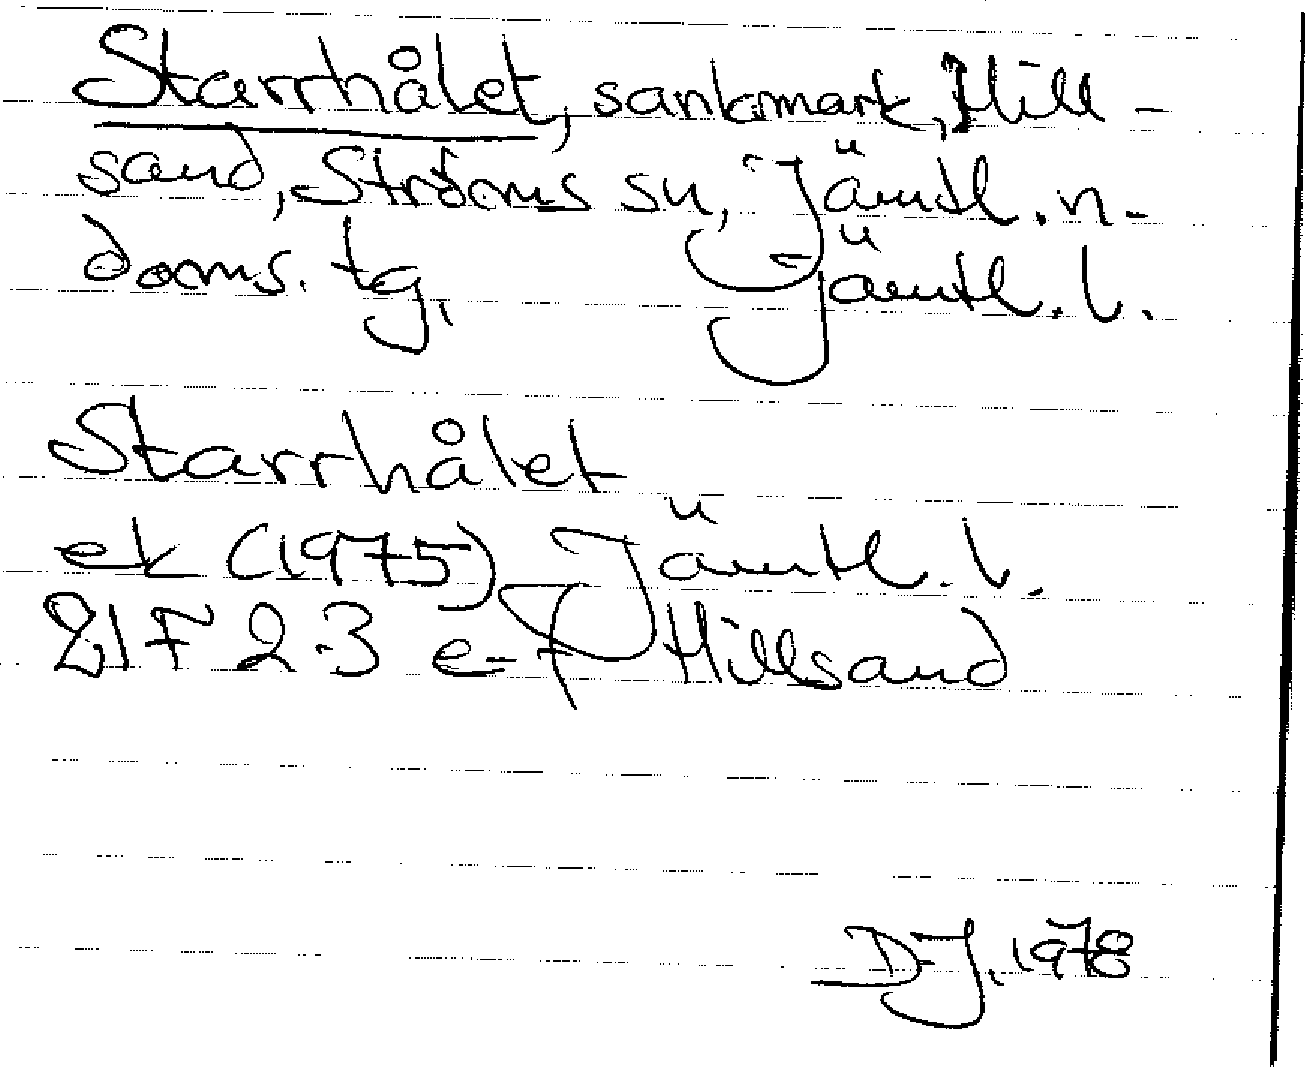 Starrhålet, sankmark, Hill-
sand, Ströms sn, Jämtl. n-
doms. tg, Jämtl. l.
Starrhålet
ek (1975) Jämtl. l.
21F 2-3 e-f Hillsand
D-J. 1978